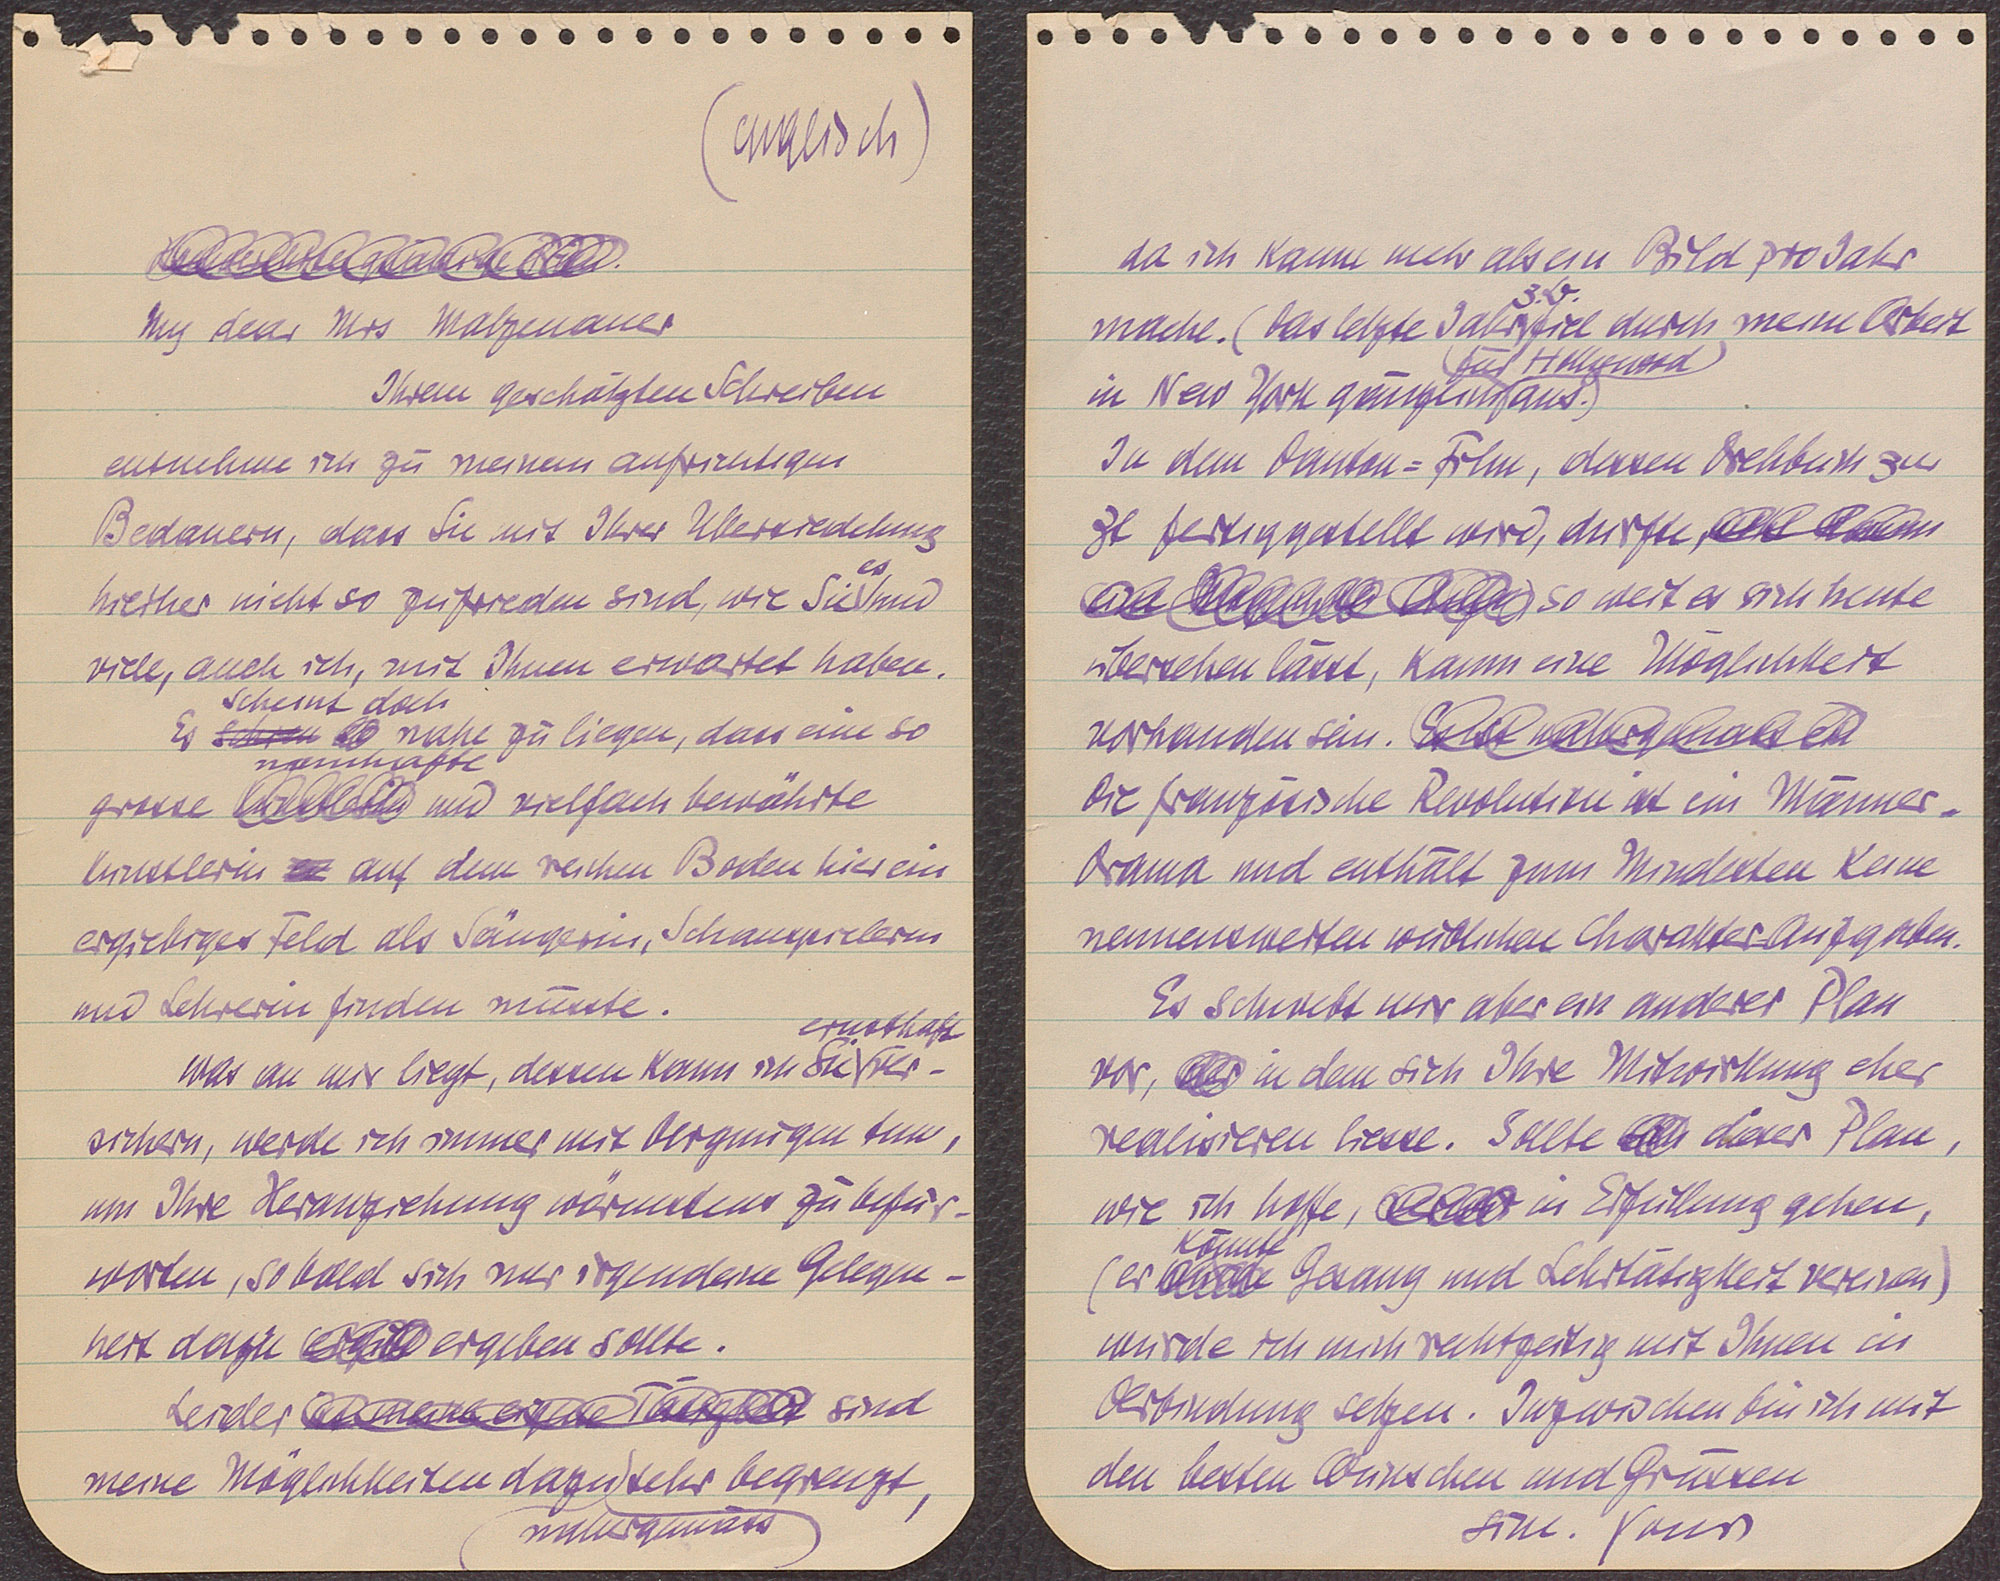 (englisch)
My dear Mrs Matzenauer
Ihrem geschätzten Schreiben
entnehme ich zu meinem aufrichtigen
Bedauern, dass Sie mit Ihrer Übersiedelung
es
hierher nicht so zufrieden sind, wie Sie und
viele, auch ich, mit Ihnen erwartet haben.
scheint doch
Es nahe zu liegen, dass eine so
namhafte
grosse und vielfach bewährte
Künstlerin auf dem reichen Boden hier ein
ergiebiges Feld als Sängerin, Schauspielerin
und Lehrerin finden müsste.
ernsthaft
Was an mir liegt, dessen kann ich Sie ver-
sichern, werde ich immer mit Vergnügen tun,
um Ihre Heranziehung wärmstens zu befür-
worten, sobald sich nur irgendeine Gelegen-
heit dazu ergeben sollte.
Leider sind
meine Möglichkeiten dazu sehr begrenzt,
naturgemäss
da ich kaum mehr als ein Bild pro Jahr
z.B.
mache. (Das letzte Jahr fiel durch meine Arbeit
für Hollywood
in New York gänzlich aus.)
In dem Danton=Film, dessen Drehbuch zur
Zt fertiggestellt wird, dürfte,
so weit es sich heute
übersehen lässt, kaum eine Möglichkeit
vorhanden sein.
Die französische Revolution ist ein Männer-
Drama und enthält zum Mindesten keine
nennenswerten weiblichen Charakter-Aufgaben.
Es schwebt mir aber ein anderer Plan
vor, in dem sich Ihre Mitwirkung eher
realisieren liesse. Sollte dieser Plan,
wie ich hoffe, in Erfüllung gehen,
könnte
(er Gesang und Lehrtätigkeit vereinen)
würde ich mich rechtzeitig mit Ihnen in
Verbindung setzen. Inzwischen bin ich mit
den besten Wünschen und Grüssen
sinc. Yours